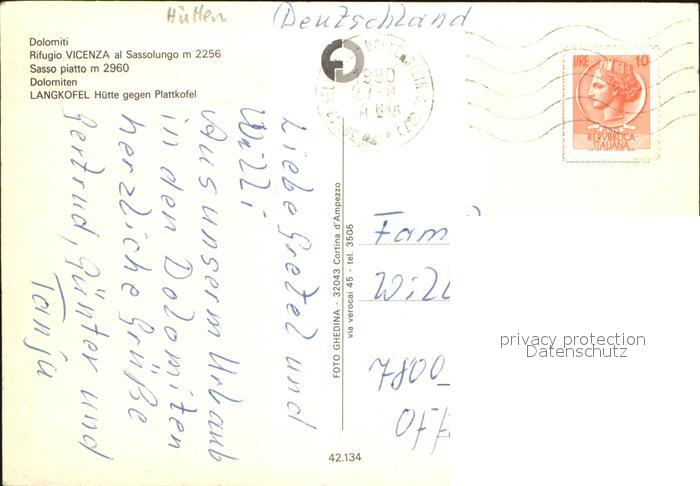 Hütten
Deutschland
Dolomiti
Rifugio VICENZA al Sassolungo m 2256
Sasso piatto m 2960
Dolomiten
LANGKOFEL Hütte gegen Plattkofel
Liebe Gretel und
Willi
Aus unserm Urlaub
in den Dolomiten
herzliche Grüße
Gertrud, Günter und
Tanja
FOTO GHEDINA - 32043 Cortina d'Ampezzo
via verocai 45 - tel. 3505
42.134
1980
27-8
LIRE 10
REPVBBLICA
ITALIANA
Fam
Will
7800
OFF
privacy protection
Datenschutz